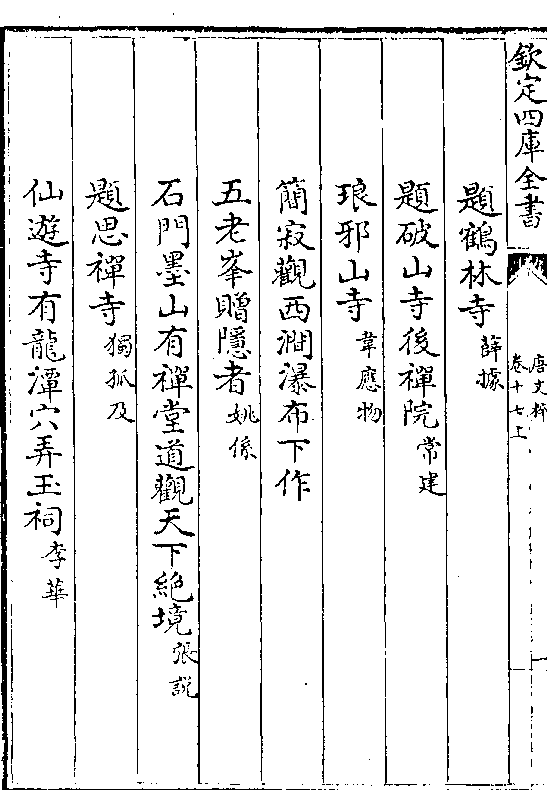 欽定四庫全書
唐文粹
卷十七上
題鶴林寺薛據
題破山寺後禪院常建
琅邪山寺韋應物
簡寂觀西澗瀑布下作
五老峯贈隱者姚係
石門墨山有禪堂道觀天下絶境張説
題思禪寺獨孤及
仙遊寺有龍潭穴弄玉祠李華